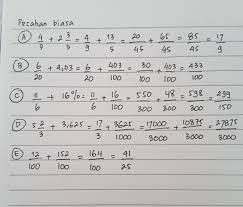 Pecahan biasa
(A) 4/9 + 2 3/5 = 4/9 + 13/5 = 20/45 + 65/45 = 85/45 = 17/9
(B) 6/20 + 4,03 = 6/20 + 403/100 = 30/100 + 403/100 = 433/100
(C) 11/6 + 16% = 11/6 + 16/100 = 550/300 + 48/300 = 598/300 = 299/150
(D) 5 2/3 + 3,625 = 17/3 + 3625/1000 = 17000/3000 + 10875/3000 = 27875/3000
(E) 12/100 + 152/100 = 164/100 = 41/25